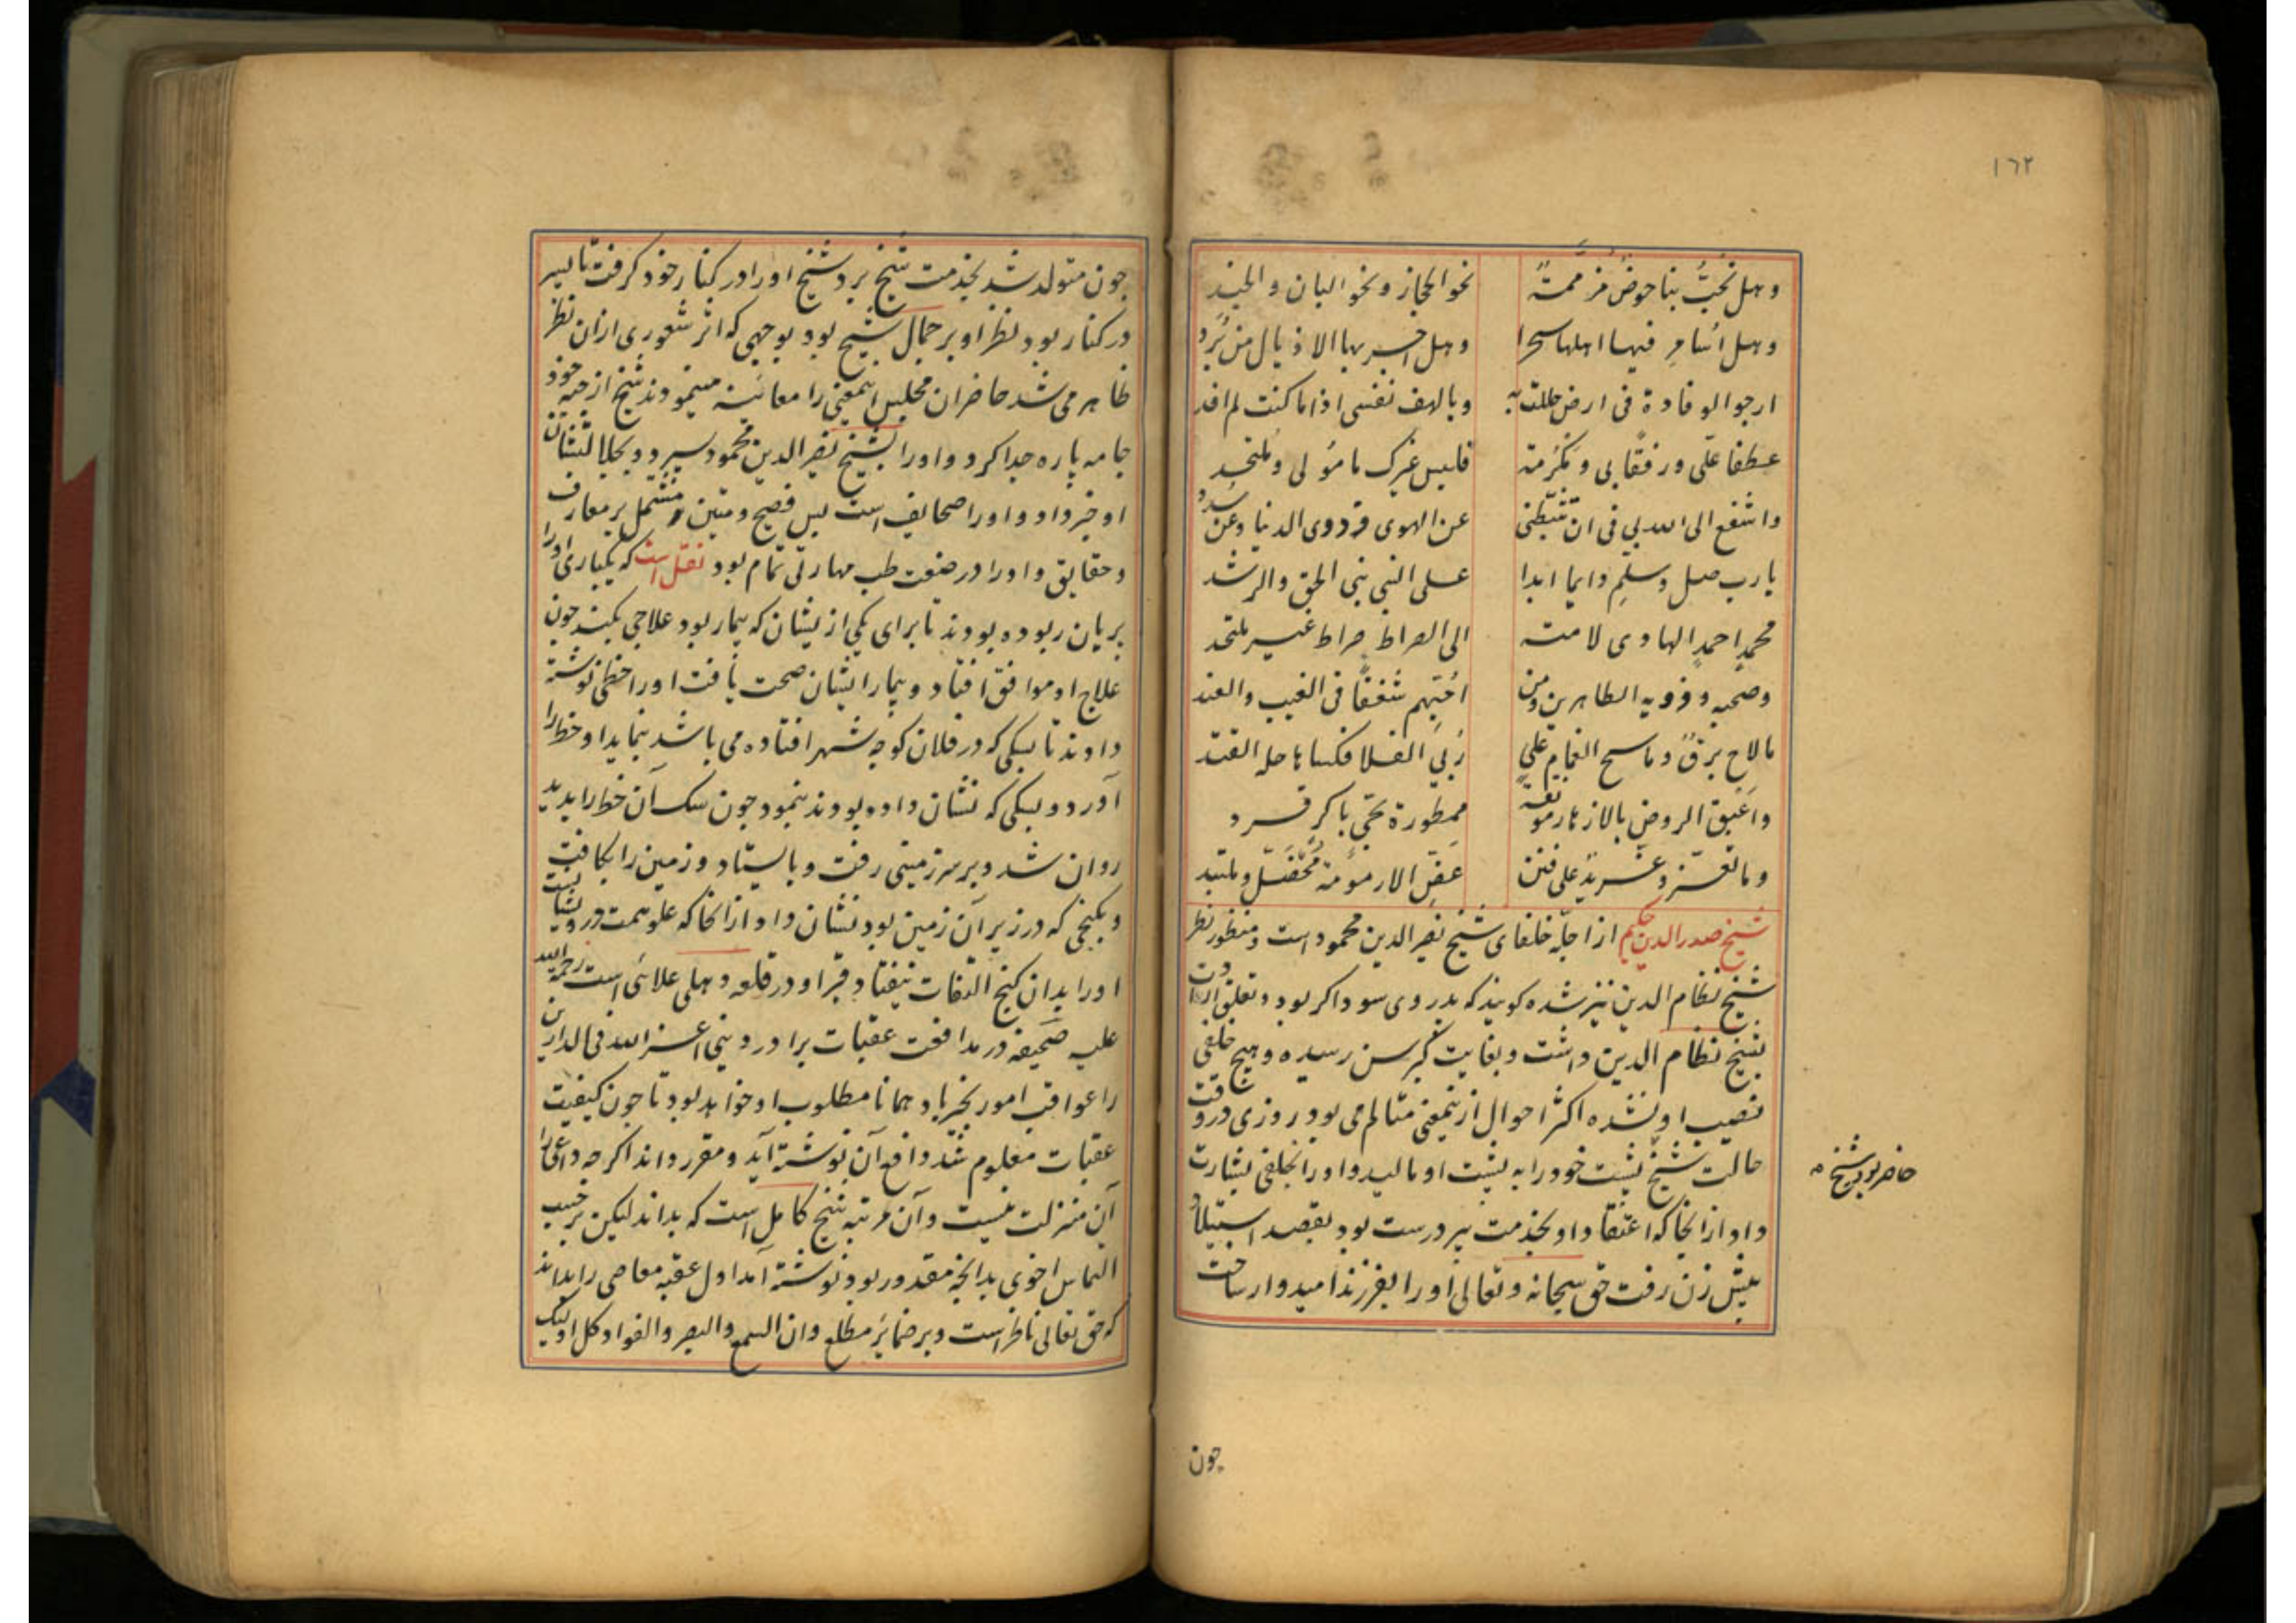 ١٦٢
وهل تخبّ بنا حوض مزممة نحو الحجاز ونحو البان والجند
وهل اسامر فيها اهلها سحرا وهل اجر بها الاذيال من برد
ارجو الوفادة فى ارض حللت به ويالهف نفسى اذا ما كنت لم افد
عطفا علّى ورفقا بى ومكرمة فليس غيرك مامولى وملتحد
واشفع الى الله لى فى ان تثبّطنى عن الهوى وددوى الدنيا وعن سدد
يارب صل وسلم دايما ابدا على النبى نبى الحق والرشد
محمد احمد الهادى لامته الى الصراط صراط غير ملتحد
وصحبه وذويه الطاهرين ومن احبّهم شغفا فى الغيب والعند
ما لاح برق وما سح الغمام على ربى الفلا فكسا
واعبق الروض بالازهار ممطورة
وما تغرد غرّيد على فنن
شيخ صدر الدين حكيم از اجلّه خلفاى شيخ نصير الدين محمود است ومنظور نظر
شيخ نظام الدين نيز شده كويند كه پدر وى سوداكر بود وتعلق ارادت
بشيخ نظام الدين داشت وبغايت كبر سن رسيده وهيچ خلفى
نصيب او نشده اكثر احوال ازينمعنى متالم مى بود روزى در وقت
حالت شيخ پشت خود را به پشت او ماليد واورا بخلفى بشارت
حاضر بود شيخ
داد از انجا كه اعتقاد او بخدمت پير درست بود بقصد استيلاد
پيش زن رفت حق سبحانه وتعالى اورا بفرزند اميدوار ساخت
چون
چون متولد شد بخدمت شيخ برد شيخ اورا در كنار خود كرفت تا پسر
در كنار بود نظر او بر جمال شيخ بود بوجهى كه اثر شعورى ازان نظر
ظاهر مى شد حاضران مجلس اينمعنى را معاينه مينمودند شيخ از جبه خود
جامه پاره جدا كرد واورا بشيخ نصير الدين محمود سپرد
او خبر داد واورا صحايف است بس فصيح ومتين مشتمل بر معارف
وحقايق واورا در صنعت طب مهارتى تمام بود نقل است كه يكبارى اورا
پريان ربوده بودند تا براى يكى ازيشان كه بيمار بود علاجى بكند چون
علاج او موافق افتاد وبيمار ايشان صحت يافت اورا خطى نوشته
دادند تا بسكى كه در فلان كوچه شهر افتاده مى باشد بنمايد او خط را
آورد وبسكى كه نشان داده بودند بنمود چون سك آن خط را بديد
روان شد وبر سر زمينى رفت وبايستاد وزمين را بكافت
وبكنجى كه در زير آن زمين بود نشان داد از انجا كه علو همت درويشان است
اورا بدان كنج التفات نيفتاد وقبر او در قلعه دهلى علائى است رحمة الله
عليه صحيفه در مدافعت عقبات برادر دينى اعز الله فى الدارين
را عواقب امور بخير باد همانا مطلوب او خواهد بود تا چون كيفيت
عقبات معلوم شد دافع آن نوشته آيد ومقرر داند اكرچه داعى را
آن منزلت نيست وآن مرتبه شيخ كامل است كه بداند ليكن بر حسب
التماس اخوى بدانچه مقدور بود نوشته آمد اول عقبه معاصى را بداند
كه حق تعالى ناظر است وبر ضماير مطلع وان السمع والبصر والفواد كل اولئك